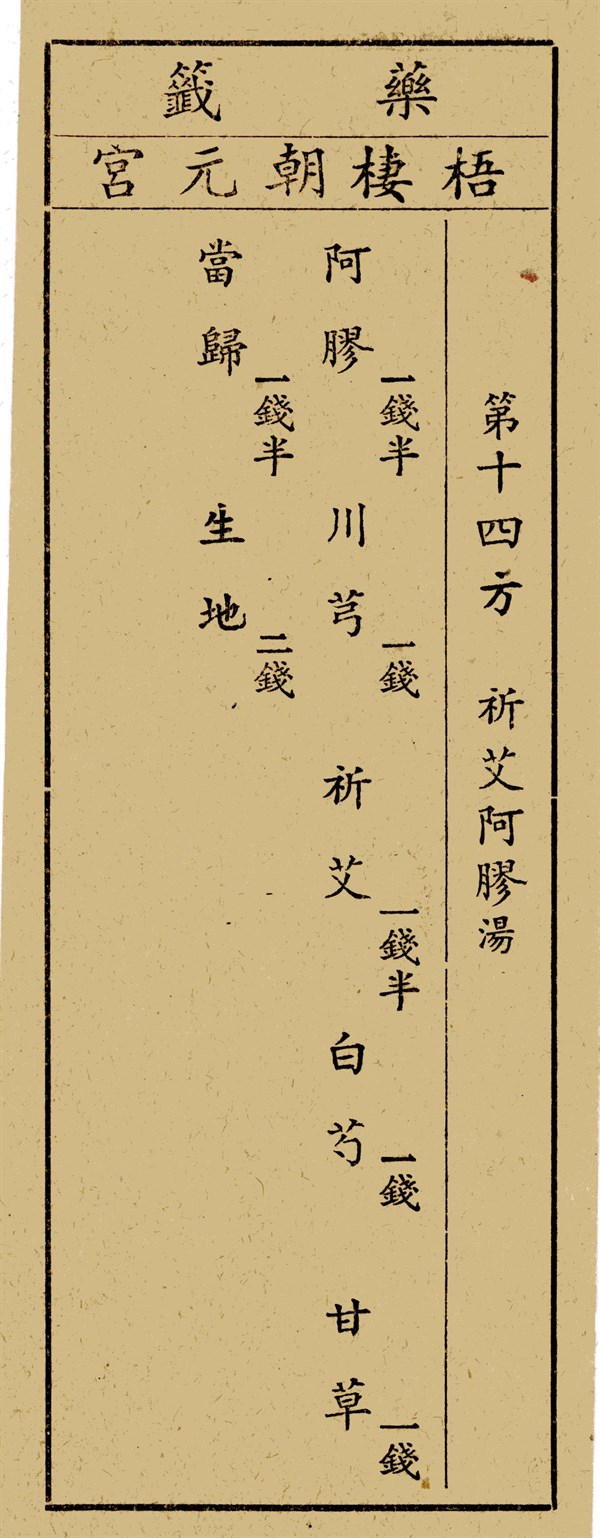 藥籤
梧棲朝元宮
第十四方 祈艾阿膠湯
阿膠一錢半 川芎一錢 祈艾一錢半 白芍一錢 甘草一錢
當歸一錢半 生地二錢